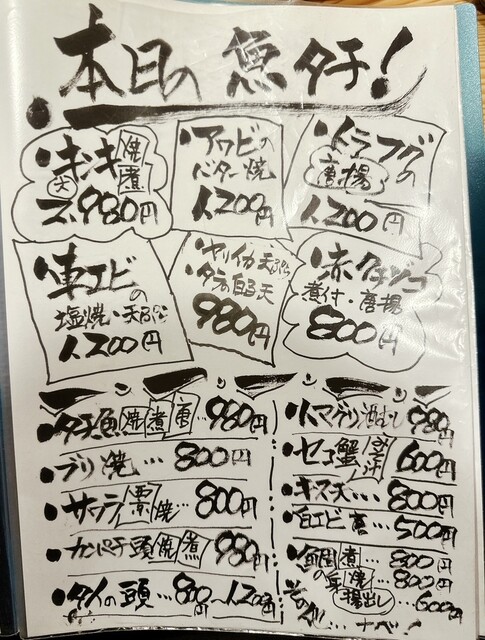 本日の魚タチ!
・キンキ 焼 煮
大 2,980円
・アワビの
バター焼
1,200円
・トラフグの
唐揚
1,200円
・車エビの
塩焼・天ぷら
1,200円
・ヤリイカ天ぷら
・タラ白子天
980円
・赤クチゾコ
煮付・唐揚
800円
・タチ魚 焼 煮 唐…980円
・ブリ焼…800円
・サワラ 焼…800円
・カンパチ頭 焼 煮 980円
・タイの頭…800円〜1,200円
・ハマグリ酒むし 980円
・セコ蟹 みそ汁 600円
・キス天…800円
・白エビ 唐…500円
煮…800円
焼…800円
揚出し…600円
その他…ナベ!